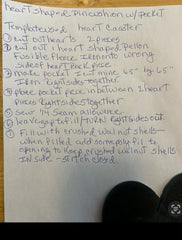 heart shaped pincushion w/pocket
Template used heart Coaster
① cut out hearts 2 pieces
② cut out 1 heart shaped Pellon
fusible fleece iron onto wrong
side of heart back piece
③ make pocket I cut mine 4.5" by 6.5"
Iron right sides together
④ place pocket piece in between 2 heart
pieces Right sides together
⑤ Sew 1/4 Seam allowance
⑥ leave gap to fill/TURN Right sides out
⑦ Fill with crushed walnut shells—
when filled add some polyfil to
opening to keep crushed walnut shells
inside - stitch closed